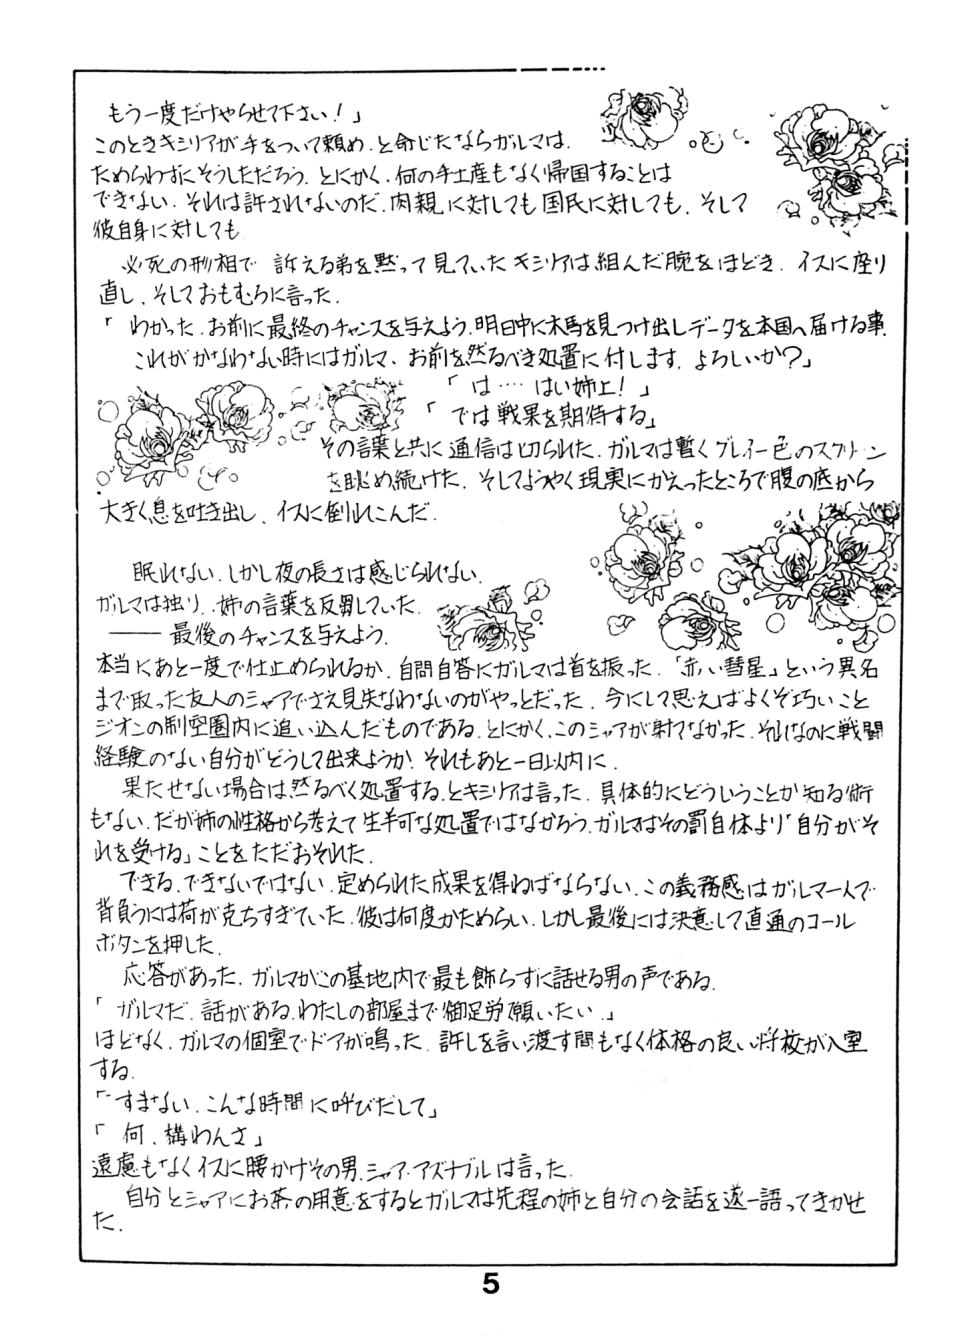 もう一度だけやらせて下さい！」
このときキシリアが手をついて頼め、と命じたならガルマは、
ためらわずにそうしただろう。とにかく、何の手土産もなく帰国することは
できない。それは許されないのだ。肉親に対しても国民に対しても、そして
彼自身に対しても
必死の形相で訴える弟を黙って見ていたキシリアは組んだ腕をほどき、イスに座り
直し、そしておもむろに言った。
「わかった。お前に最終のチャンスを与えよう。明日中に木馬を見つけ出しデータを本国へ届ける事。
これがかなわない時にはガルマ、お前を然るべき処置に付します。よろしいか？」
「は‥‥はい姉上！」
「では戦果を期待する」
その言葉と共に通信は切られた。ガルマは暫くグレイ色のスクリーン
を眺め続けた。そしてようやく現実にかえったところで腹の底から
大きく息を吐き出し、イスに倒れこんだ。
眠れない。しかし夜の長さは感じられない。
ガルマは独り、姉の言葉を反芻していた。
――最後のチャンスを与えよう。
本当にあと一度で仕止められるか、自問自答にガルマは首を振った。「赤い彗星」という異名
まで取った友人のシャアでさえ見失なわないのがやっとだった。今にして思えばよくぞ巧いこと
ジオンの制空圏内に追い込んだものである。とにかく、このシャアが射てなかった。それなのに戦闘
経験のない自分がどうして出来ようか。それもあと一日以内に。
果たせない場合は然るべく処置する、とキシリアは言った。具体的にどういうことか知る術
もない。だが姉の性格から考えて生半可な処置ではなかろう。ガルマはその罰自体より「自分がそ
れを受ける」ことをただおそれた。
できる、できないではない。定められた成果を得ねばならない。この義務感はガルマ一人で
背負うには荷が克ちすぎていた。彼は何度かためらい、しかし最後には決意して直通のコール
ボタンを押した。
応答があった。ガルマがこの基地内で最も飾らずに話せる男の声である。
「ガルマだ。話がある。わたしの部屋まで御足労願いたい。」
ほどなく、ガルマの個室でドアが鳴った。許しを言い渡す間もなく体格の良い将校が入室
する。
「すまない、こんな時間に呼びだして」
「何、構わんさ」
遠慮もなくイスに腰かけその男、シャア・アズナブルは言った。
自分とシャアにお茶の用意をするとガルマは先程の姉と自分の会話を逐一語ってきかせ
た。
5